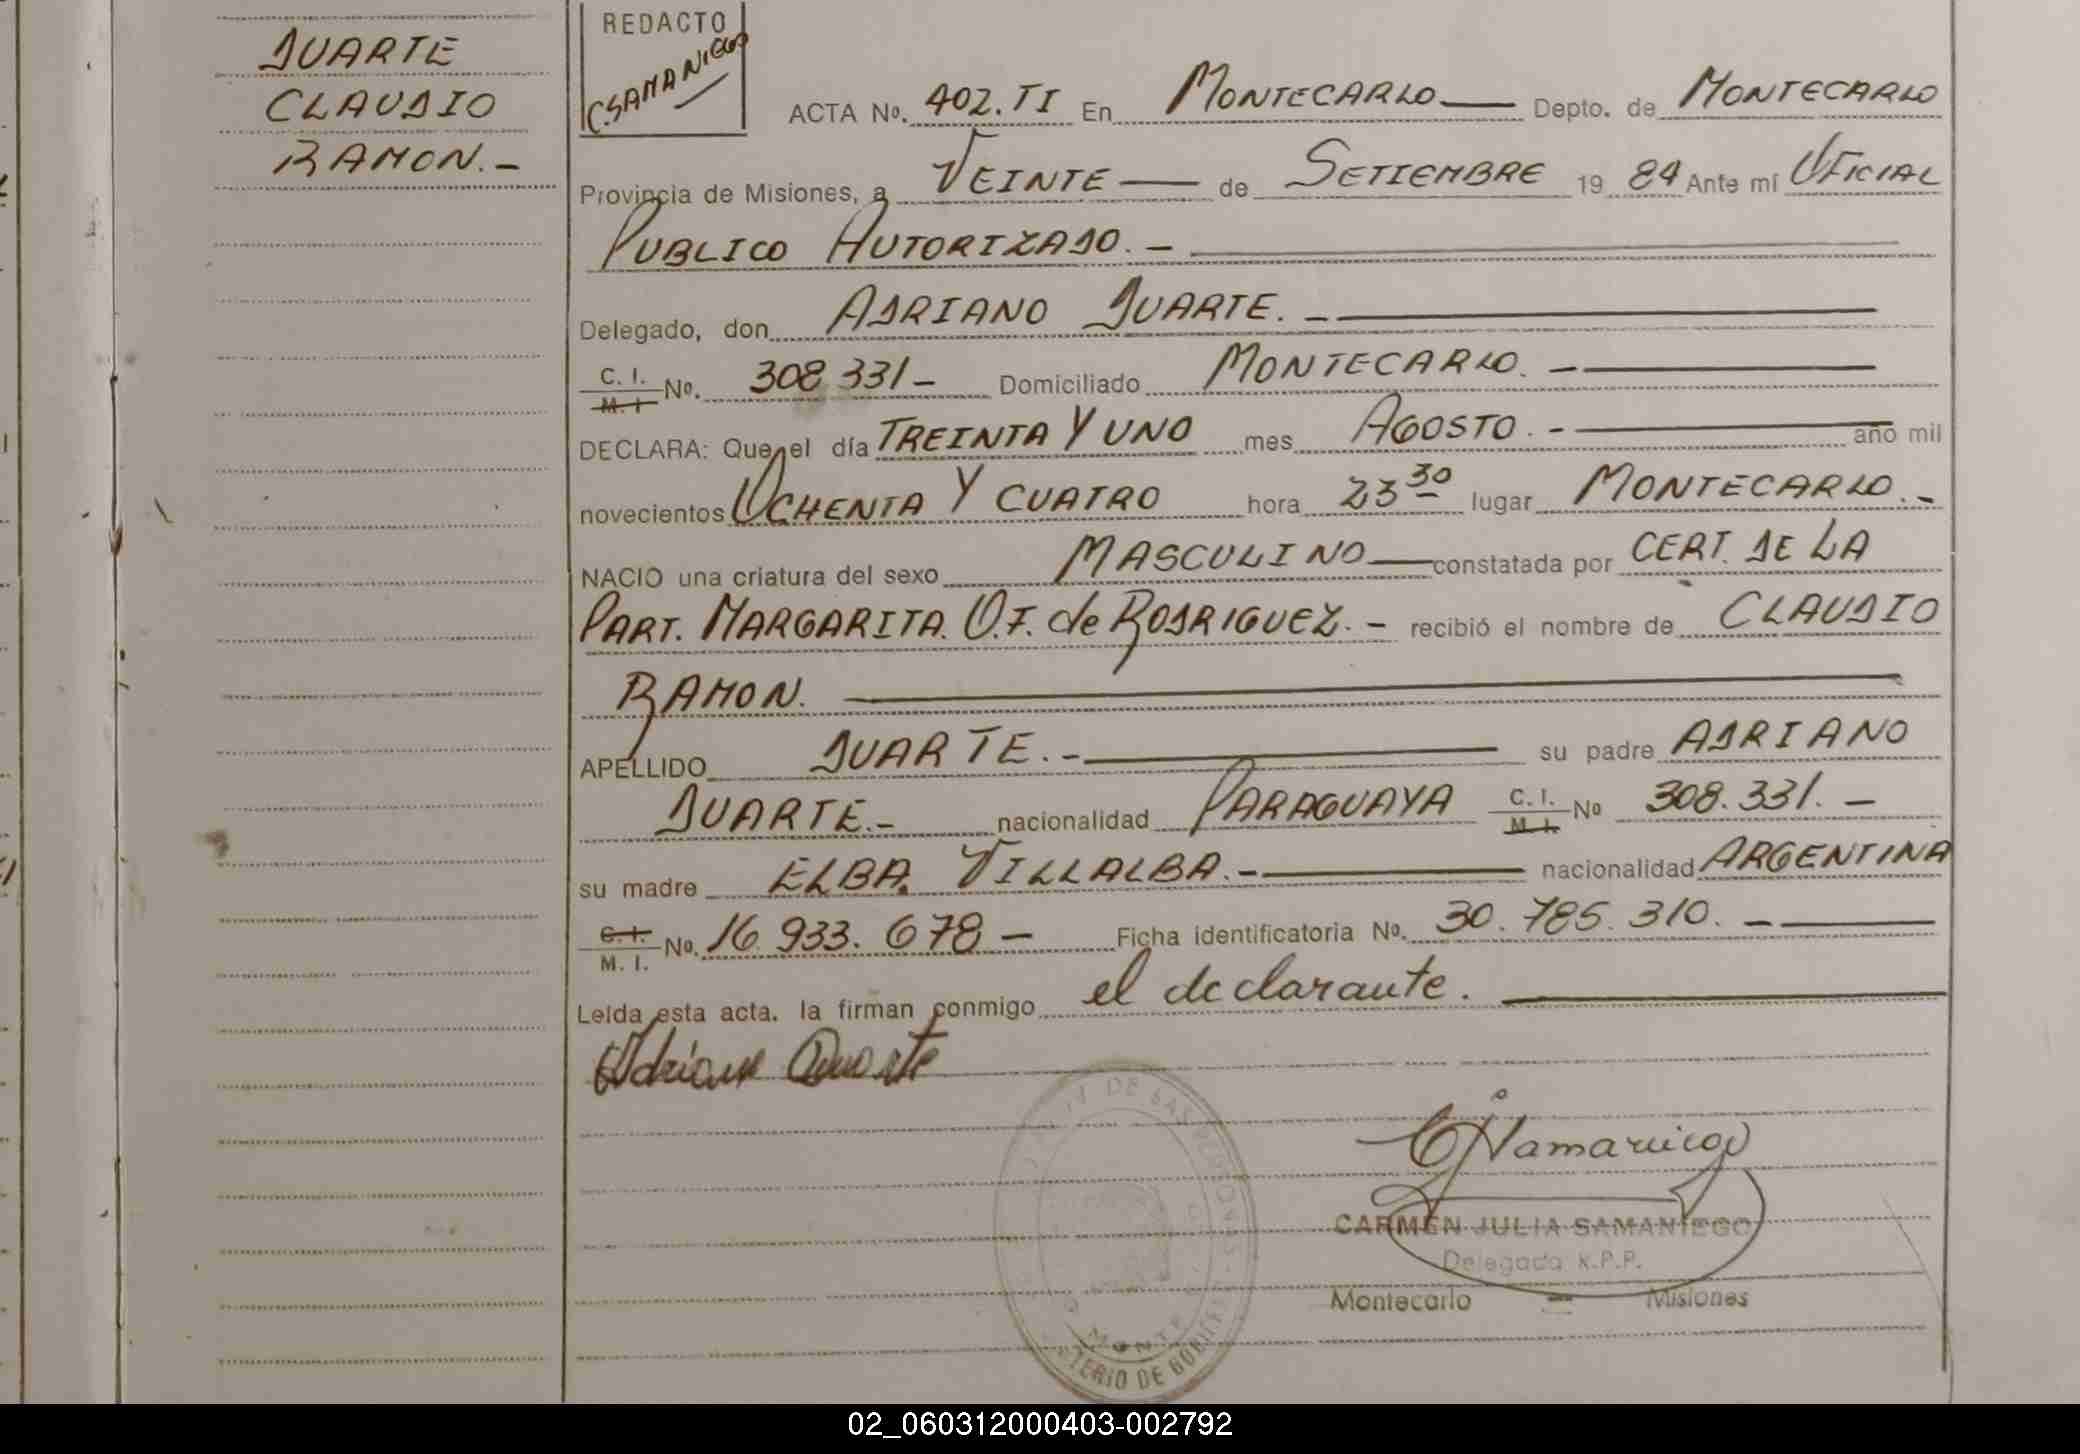 DUARTE
CLAUDIO
RAMON.-
REDACTO
C.SAMANIEGO
ACTA No. 402.TI En MONTECARLO Depto. de MONTECARLO
Provincia de Misiones, a VEINTE de SETIEMBRE 19 84 Ante mí OFICIAL
PUBLICO AUTORIZADO.-
Delegado, don ADRIANO DUARTE.-
C. I. M. I No. 308.331- Domiciliado MONTECARLO.-
DECLARA: Que el día TREINTA Y UNO mes AGOSTO.- año mil
novecientos OCHENTA Y CUATRO hora 23 30 lugar MONTECARLO.-
NACIO una criatura del sexo MASCULINO constatada por CERT. DE LA
PART. MARGARITA. O.F. de RODRIGUEZ.- recibió el nombre de CLAUDIO
RAMON.
APELLIDO DUARTE.- su padre ADRIANO
DUARTE.- nacionalidad PARAGUAYA C. I. M. I. No 308.331.-
su madre ELBA VILLALBA.- nacionalidad ARGENTINA
C. I. M. I. No. 16.933.678- Ficha identificatoria No. 30.785.310.-
Leída esta acta. la firman conmigo el declarante.
Adriano Duarte
CJSamaniego
CARMEN JULIA SAMANIEGO
Delegada R.P.P.
Montecarlo - Misiones
DE LAS
MONTE
TERIO DE GOB
02_060312000403-002792